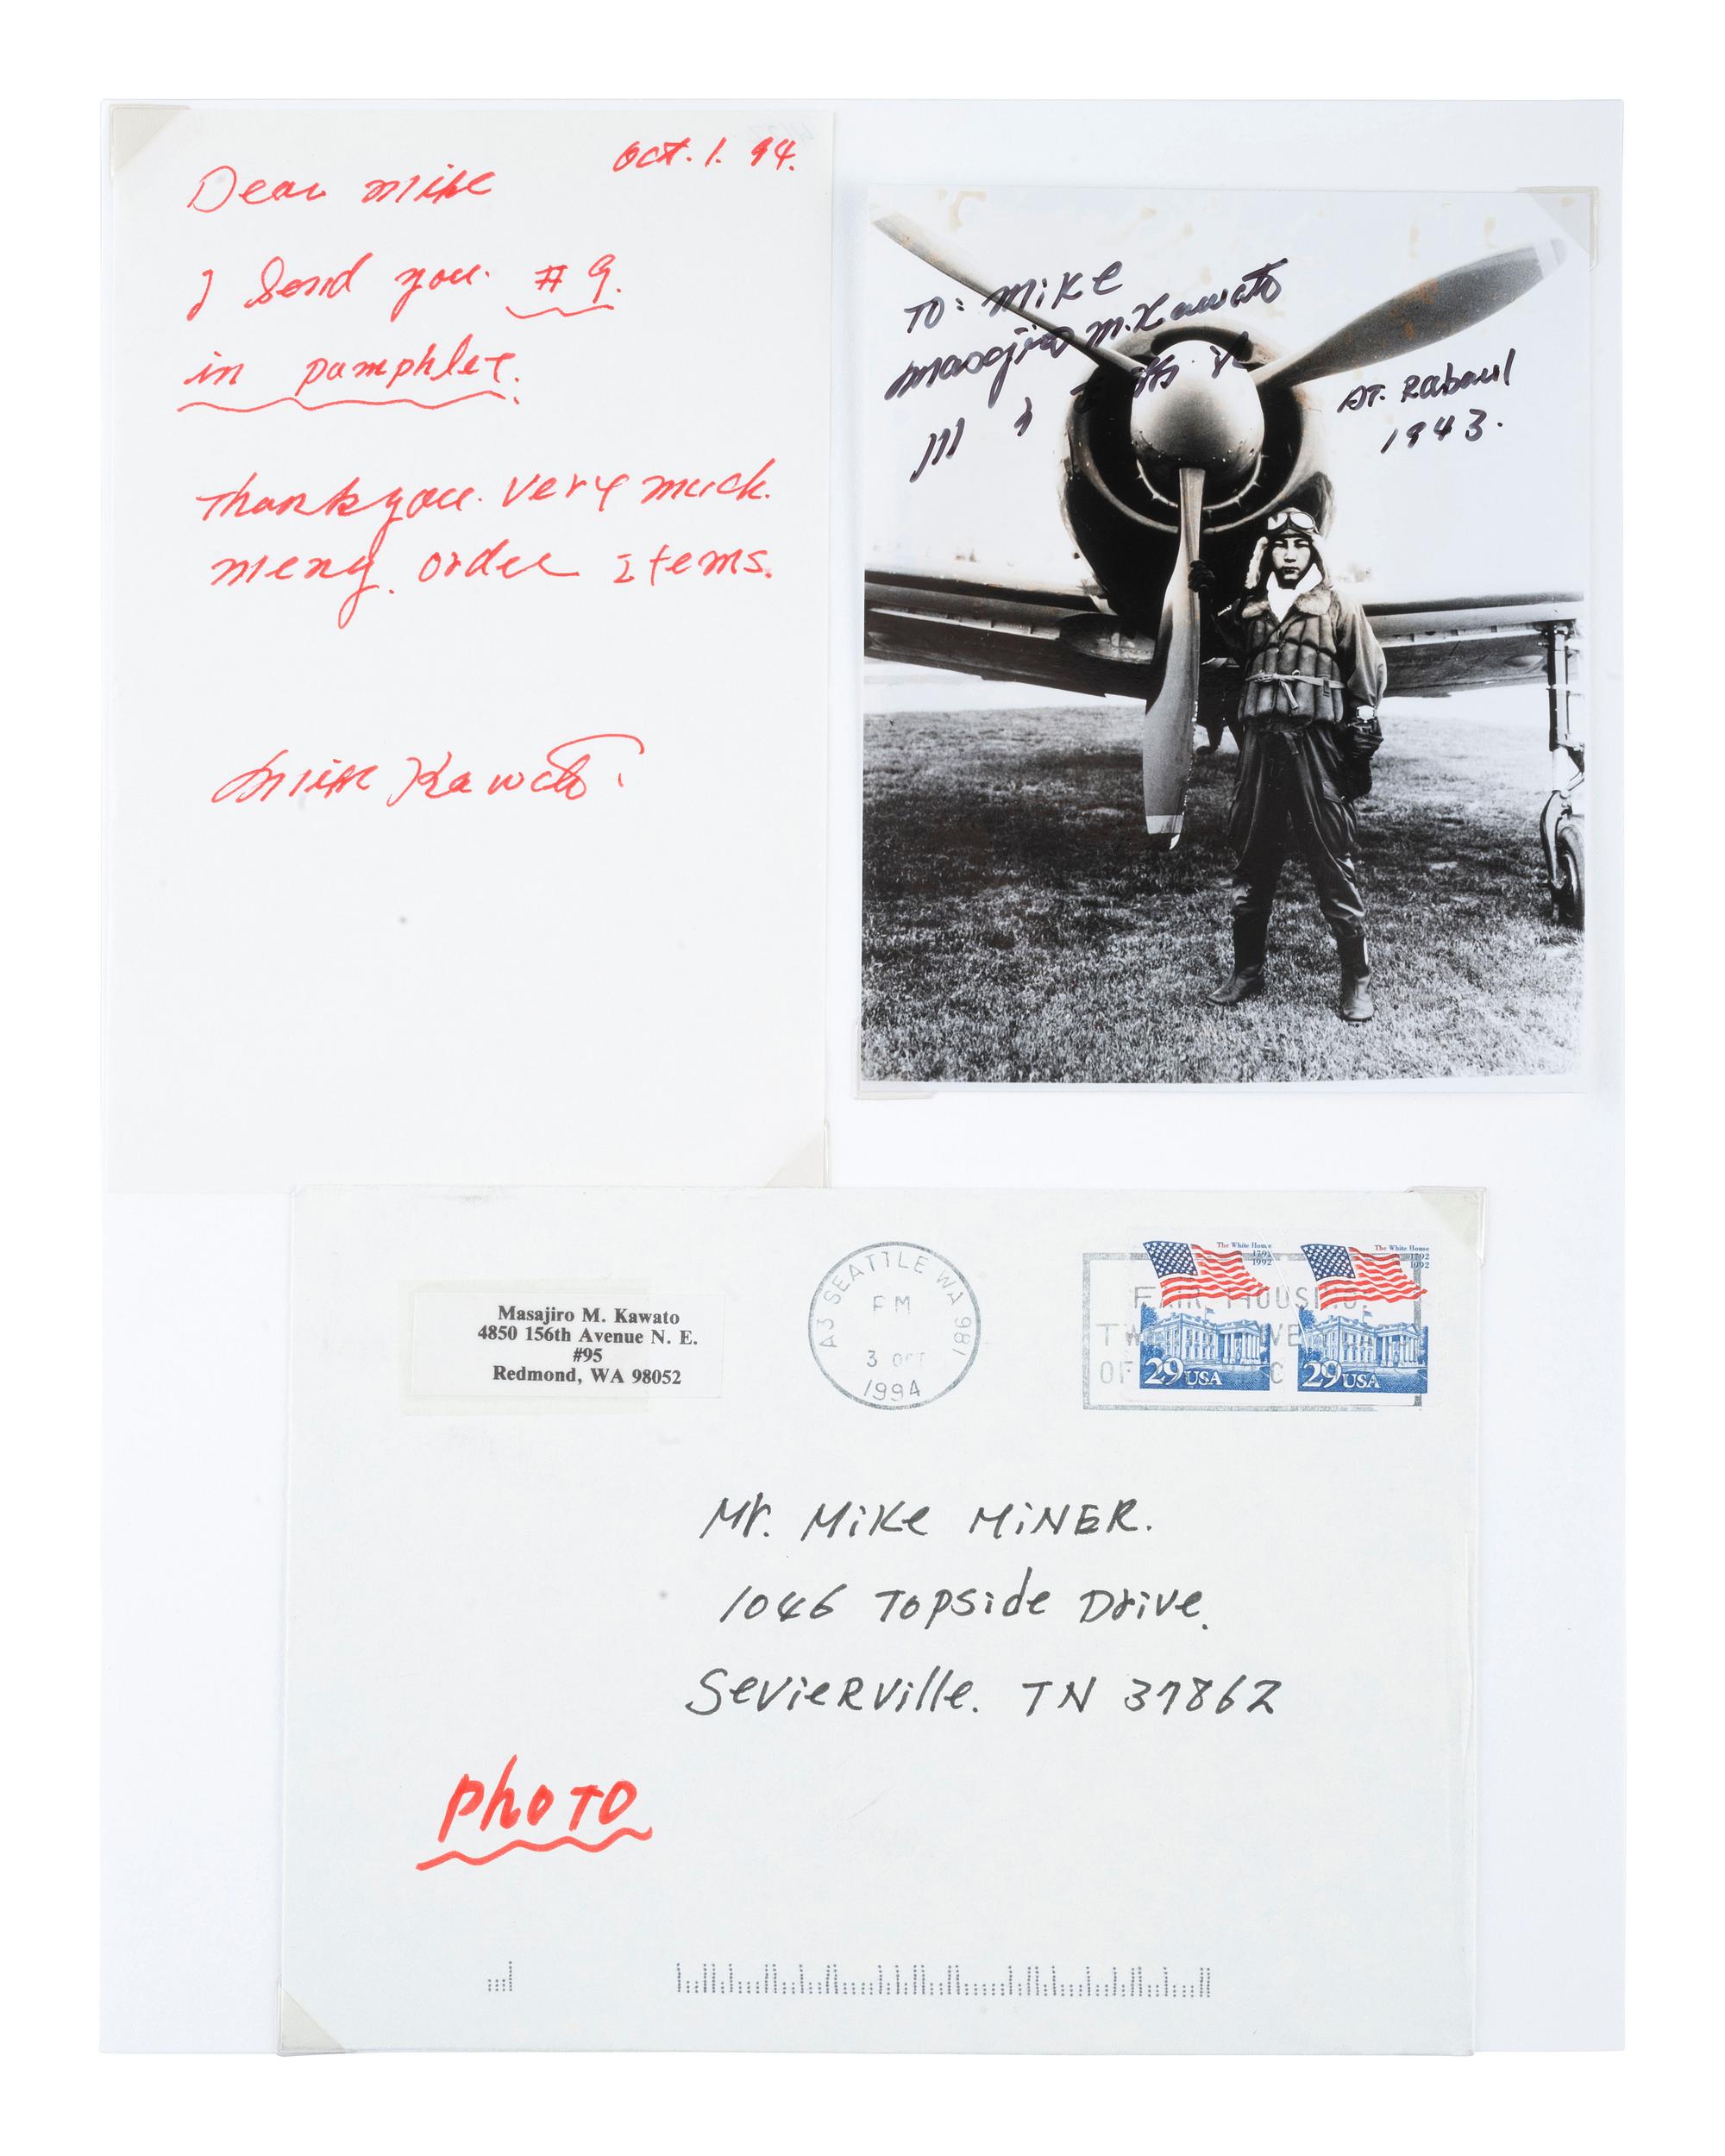 Oct. 1. 94.
Dear Mike
I Send you. # 9.
in pamphlet.
Thank you. very much.
meny. order Items.
Mike Kawato.
TO: Mike
Masajiro M. Kawato
AT. Rabaul
1943.
Masajiro M. Kawato
4850 156th Avenue N. E.
#95
Redmond, WA 98052
A3 SEATTLE WA 981
PM
3 OCT
1994
FAIR HOUSING
OF
The White House
1792
1992
29 USA
The White House
1792
1992
29 USA
Mr. Mike MiNER.
1046 Topside Drive.
SevieRville. TN 37862
PhoTO